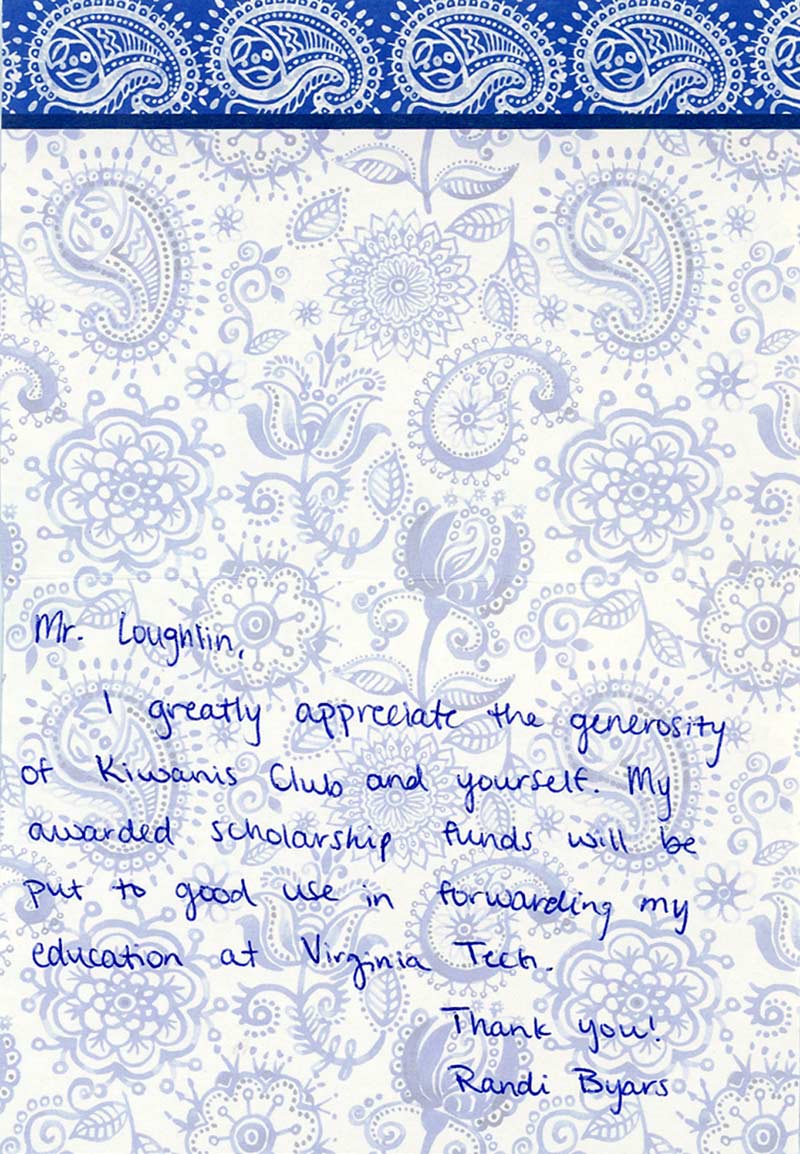 Mr. Loughlin,
I greatly appreciate the generosity
of Kiwanis Club and yourself. My
awarded scholarship funds will be
put to good use in forwarding my
education at Virginia Tech.
Thank you!
Randi Byars